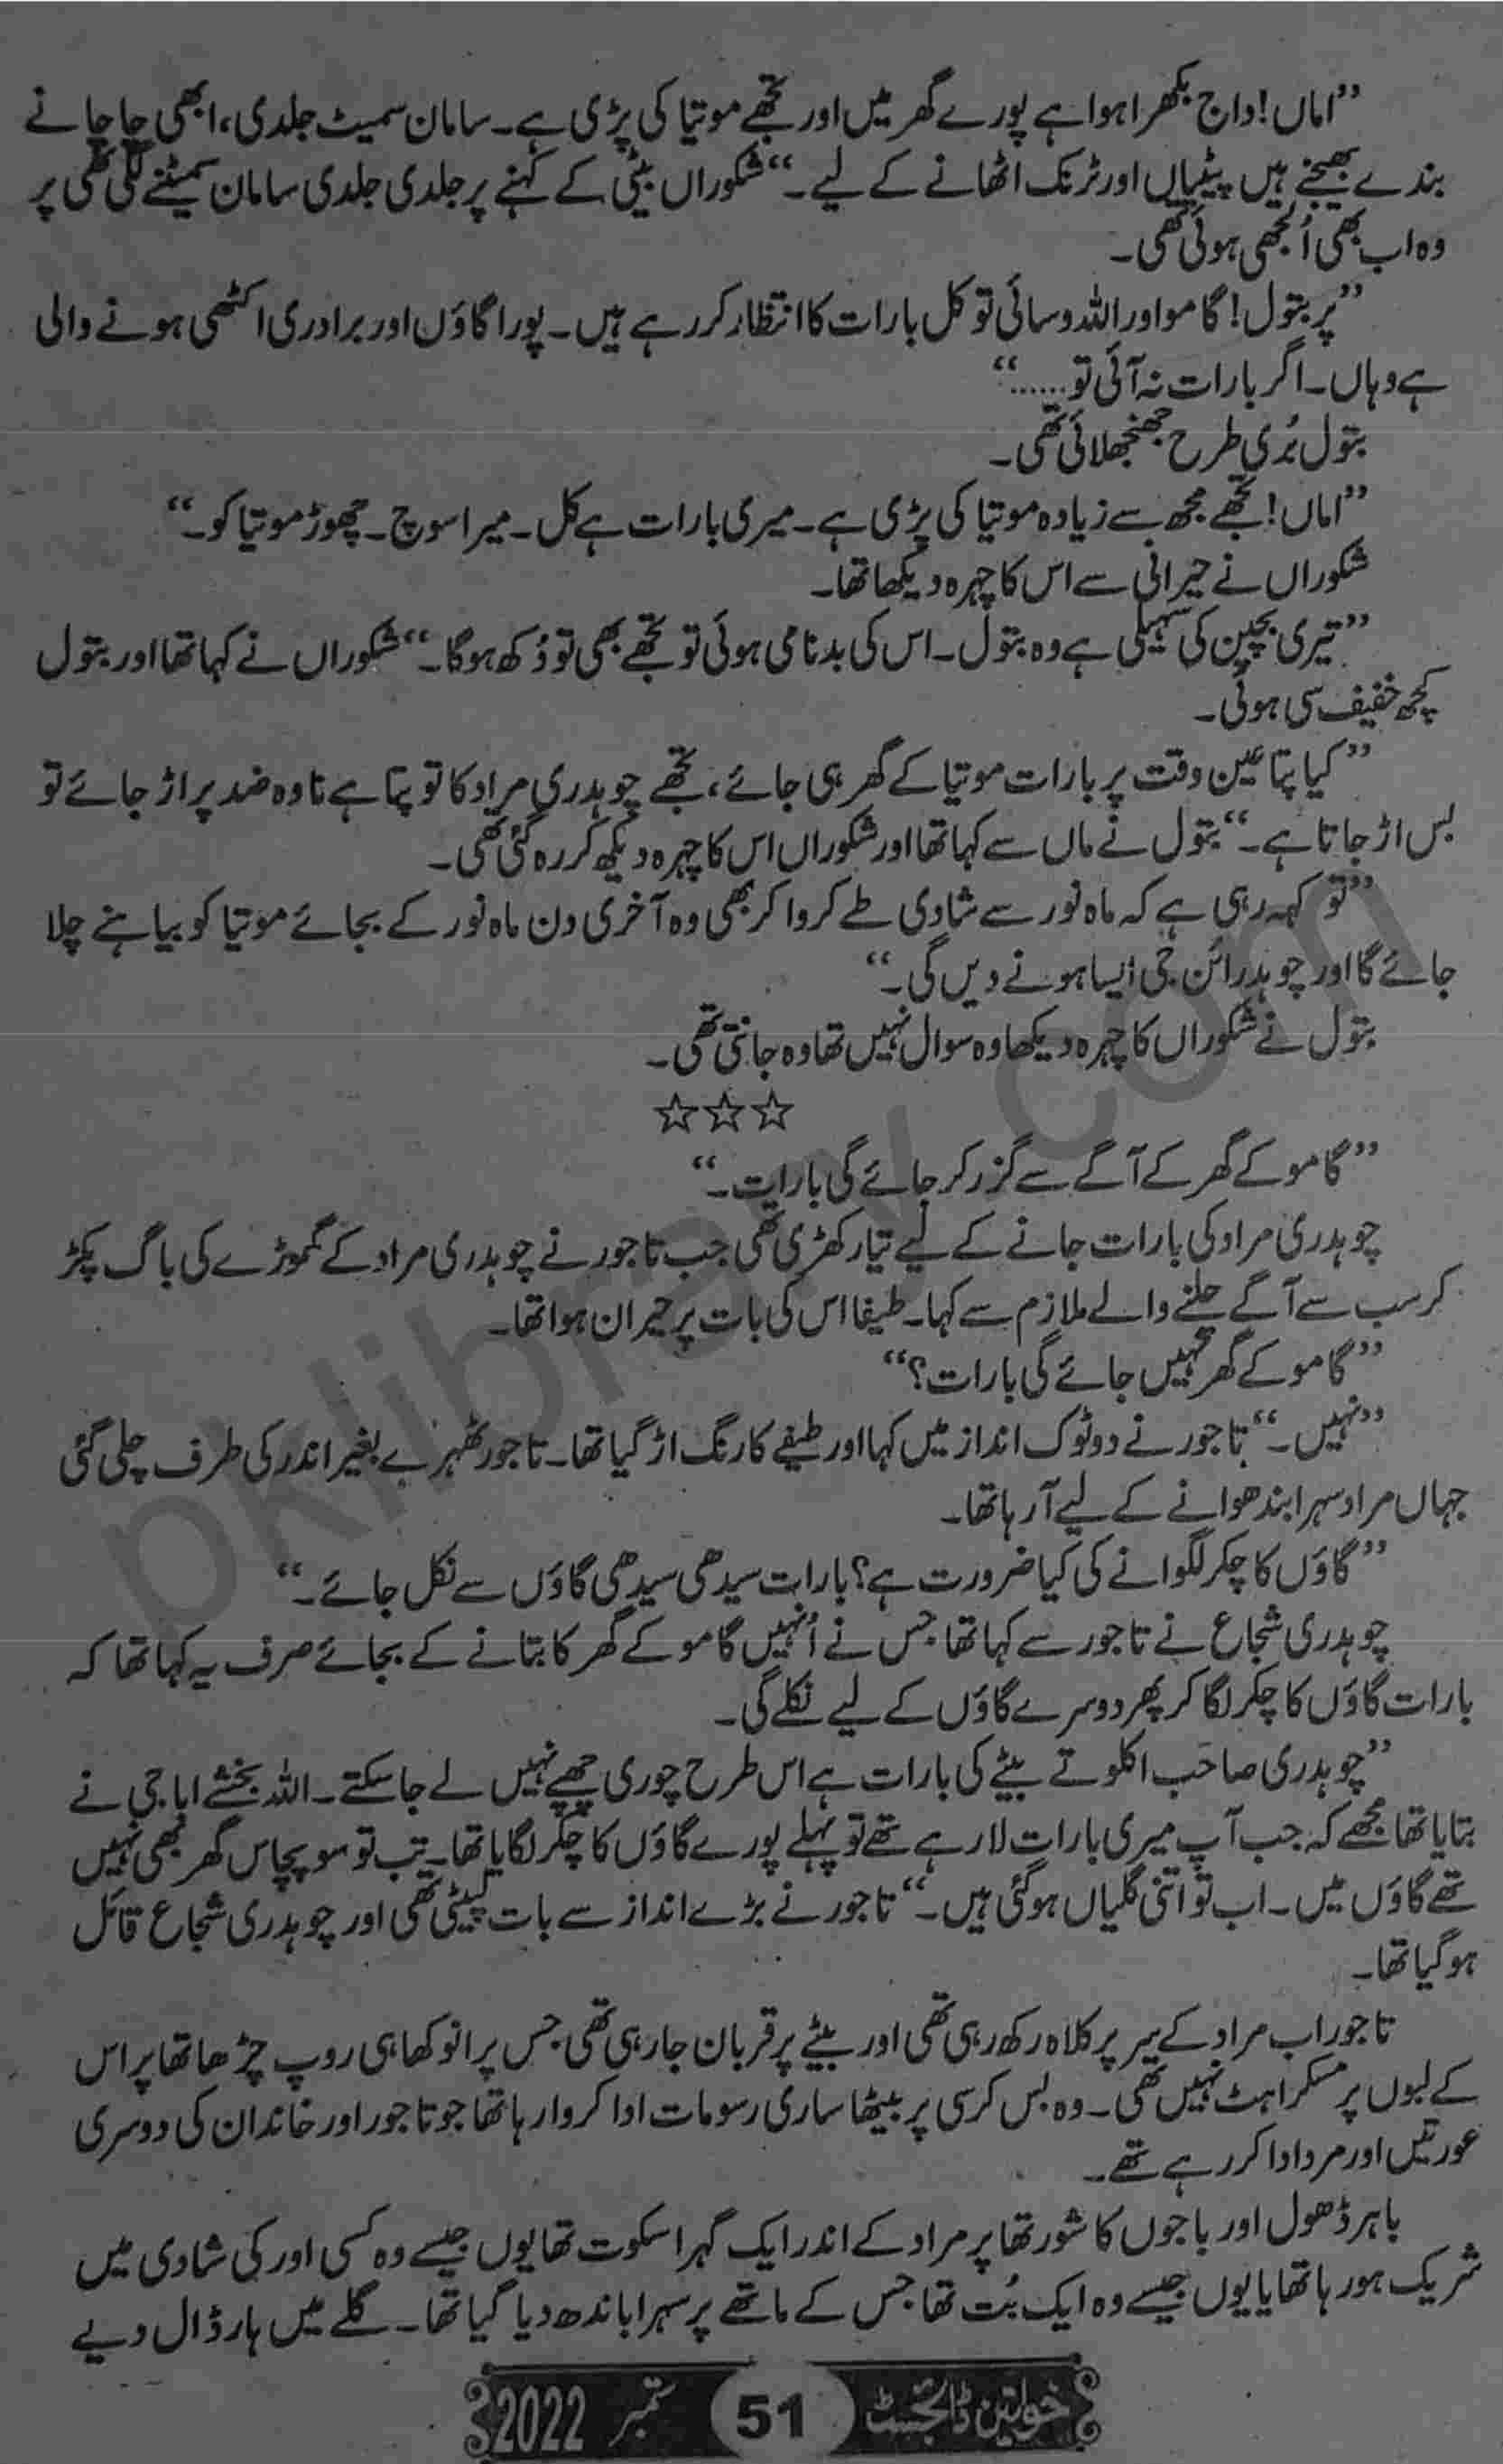 ”اماں! داج بکھرا ہوا ہے پورے گھر میں اور تجھے موتیا کی پڑی ہے۔ سامان سمیٹ جلدی، ابھی چاچا نے
بندے بھیجنے ہیں پیٹیاں اور ٹرنک اٹھانے کے لیے۔“ شکوراں بیٹی کے کہنے پر جلدی جلدی سامان سمیٹنے لگی تھی پر
وہ اب بھی اُلجھی ہوئی تھی۔
”پر بتول! گامو اور اللہ وسائی تو کل بارات کا انتظار کر رہے ہیں۔ پورا گاؤں اور برادری اکٹھی ہونے والی
ہے وہاں۔ اگر بارات نہ آئی تو......“
بتول بُری طرح جھنجھلائی تھی۔
”اماں! تجھے مجھ سے زیادہ موتیا کی پڑی ہے۔ میری بارات ہے کل۔ میرا سوچ۔ چھوڑ موتیا کو۔“
شکوراں نے حیرانی سے اس کا چہرہ دیکھا تھا۔
”تیری بچپن کی سہیلی ہے وہ بتول۔ اس کی بدنامی ہوئی تو تجھے بھی تو دُکھ ہو گا۔“ شکوراں نے کہا تھا اور بتول
کچھ خفیف سی ہوئی۔
”کیا پتا عین وقت پر بارات موتیا کے گھر ہی جائے، تجھے چوہدری مراد کا تو پتا ہے نا وہ ضد پر اڑ جائے تو
بس اڑ جاتا ہے۔“ بتول نے ماں سے کہا تھا اور شکوراں اس کا چہرہ دیکھ کر رہ گئی تھی۔
”تو کہہ رہی ہے کہ ماہ نور سے شادی طے کروا کر بھی وہ آخری دن ماہ نور کے بجائے موتیا کو بیاہنے چلا
جائے گا اور چوہدرائن جی ایسا ہونے دیں گی۔“
بتول نے شکوراں کا چہرہ دیکھا وہ سوال نہیں تھا وہ جانتی تھی۔
☆☆☆
”گامو کے گھر کے آگے سے گزر کر جائے گی بارات۔“
چوہدری مراد کی بارات جانے کے لیے تیار کھڑی تھی جب تاجور نے چوہدری مراد کے گھوڑے کی باگ پکڑ
کر سب سے آگے چلنے والے ملازم سے کہا۔ طیفا اس کی بات پر حیران ہوا تھا۔
”گامو کے گھر نہیں جائے گی بارات؟“
”نہیں۔“ تاجور نے دوٹوک انداز میں کہا اور طیفے کا رنگ اڑ گیا تھا۔ تاجور ٹھہرے بغیر اندر کی طرف چلی گئی
جہاں مراد سہرا بندھوانے کے لیے آ رہا تھا۔
”گاؤں کا چکر لگوانے کی کیا ضرورت ہے؟ بارات سیدھی سیدھی گاؤں سے نکل جائے۔“
چوہدری شجاع نے تاجور سے کہا تھا جس نے اُنہیں گامو کے گھر کا بتانے کے بجائے صرف یہ کہا تھا کہ
بارات گاؤں کا چکر لگا کر پھر دوسرے گاؤں کے لیے نکلے گی۔
”چوہدری صاحب اکلوتے بیٹے کی بارات ہے اس طرح چوری چھپے نہیں لے جا سکتے۔ اللہ بخشے ابا جی نے
بتایا تھا مجھے کہ جب آپ میری بارات لا رہے تھے تو پہلے پورے گاؤں کا چکر لگایا تھا۔ تب تو سو پچاس گھر بھی نہیں
تھے گاؤں میں۔ اب تو اتنی گلیاں ہو گئی ہیں۔“ تاجور نے بڑے انداز سے بات لپیٹی تھی اور چوہدری شجاع قائل
ہو گیا تھا۔
تاجور اب مراد کے سر پر کلاہ رکھ رہی تھی اور بیٹے پر قربان جا رہی تھی جس پر انوکھا ہی روپ چڑھا تھا پر اس
کے لبوں پر مسکراہٹ نہیں تھی۔ وہ بس کرسی پر بیٹھا ساری رسومات ادا کروا رہا تھا جو تاجور اور خاندان کی دوسری
عورتیں اور مرد ادا کر رہے تھے۔
باہر ڈھول اور باجوں کا شور تھا پر مراد کے اندر ایک گہرا سکوت تھا یوں جیسے وہ کسی اور کی شادی میں
شریک ہو رہا تھا یا یوں جیسے وہ ایک بُت تھا جس کے ماتھے پر سہرا باندھ دیا گیا تھا۔ گلے میں ہار ڈال دیے
خواتین ڈائجسٹ 51 ستمبر 2022
pklibrary.com